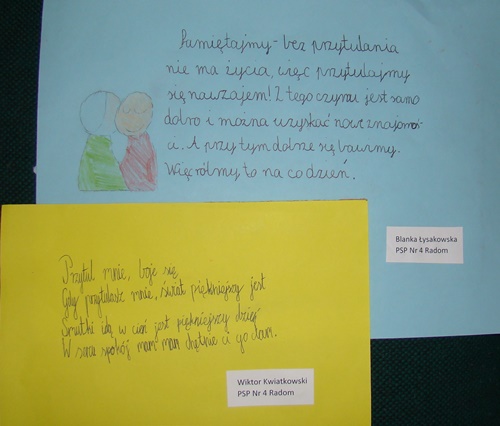 Pamiętajmy - bez przytulania
nie ma życia, więc przytulajmy
się nawzajem! Z tego czynu jest samo
dobro i można uzyskać nowe znajomoś-
ci. A przy tym dobrze się bawimy.
Więc róbmy to na co dzień.
Blanka Łysakowska
PSP Nr 4 Radom
Przytul mnie, boje się
Gdy przytulasz mnie, świat piękniejszy jest
Smutki idą w cień jest piękniejszy dzień
W sercu spokój mam mam chętnie ci go dam.
Wiktor Kwiatkowski
PSP Nr 4 Radom